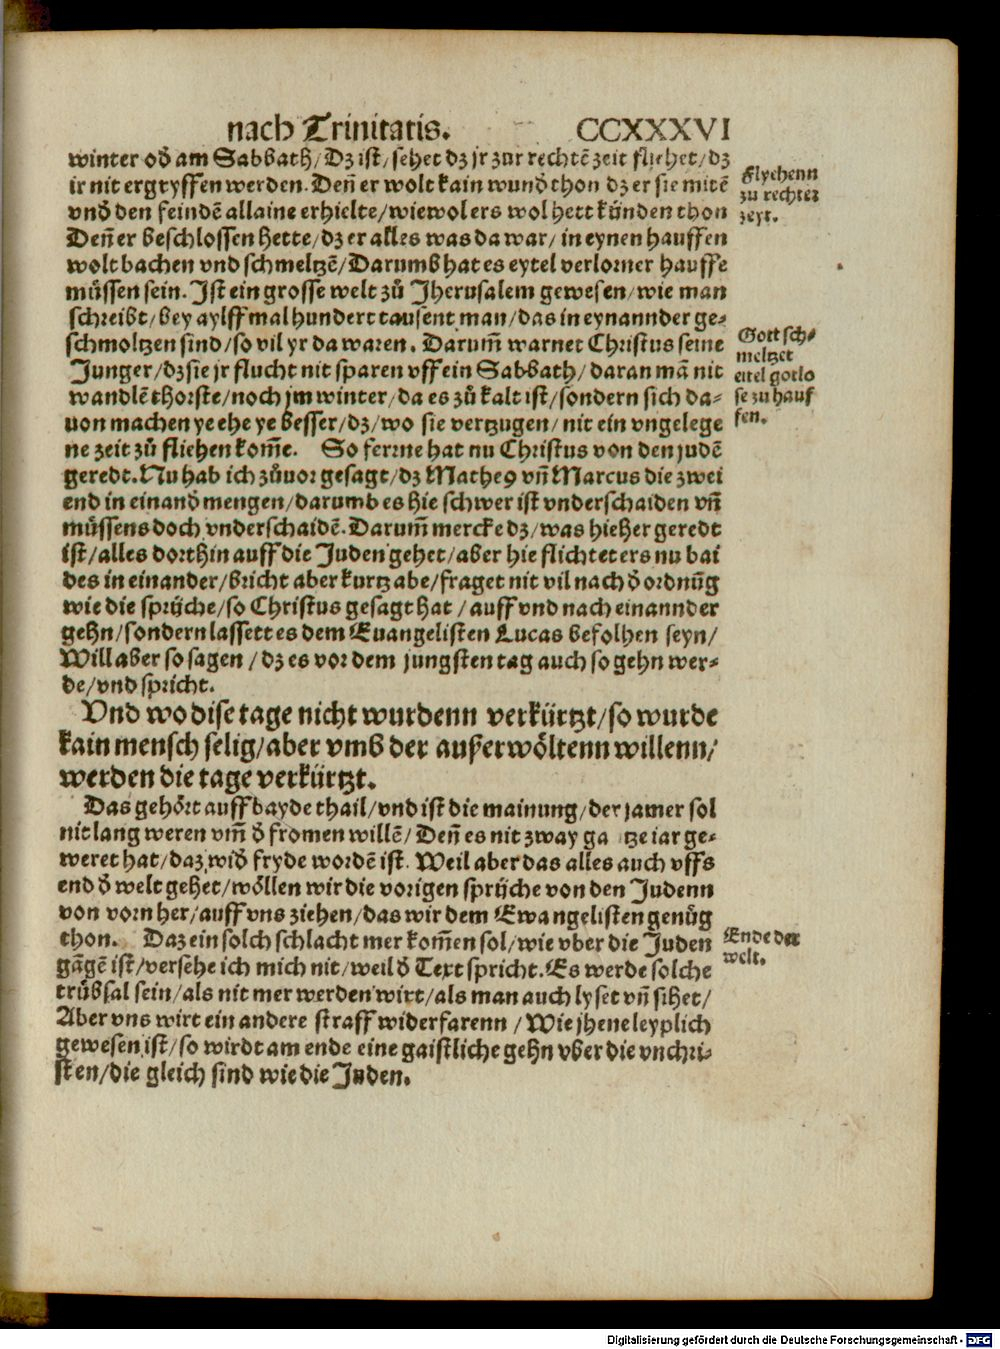 nach Trinitatis. CCXXXVI
winter oď am Sabbath/Dz ist/sehet dz jr zur rechtẽ zeit fliehet/dz
ir nit ergryffen werden. Deñ er wolt kain wunď thon dz er sie mitẽ
vnď den feindẽ allaine erhielte/wiewol ers wol hett künden thon
Deñ er beschlossen hette/dz er alles was da war/ in eynen hauffen
wolt bachen vnd schmeltzẽ/Darumb hat es eytel verlorner hauffe
müssen sein. Ist ein grosse welt zů Jherusalem gewesen/wie man
schreibt/bey aylff mal hundert tausent man/das in eynannder ge-
schmoltzen sind/so vil yr da waren. Darum̃ warnet Christus seine
Junger/dz sie jr flucht nit sparen vff ein Sabbath/ daran mã nit
wandlẽ thorste/noch jm winter/da es zů kalt ist/sondern sich da-
uon machen ye ehe ye besser/dz/wo sie vertzugen/nit ein vngelege
ne zeit zů fliehen kom̃e. So ferrne hat nu Christus von den judẽ
geredt. Nu hab ich zůuor gesagt/dz Matheꝰ vñ Marcus die zwei
end in einanď mengen/darumb es hie schwer ist vnderschaiden vñ
müssens doch vnderschaidẽ. Darum̃ mercke dz/was hieher geredt
ist/alles dorthin auff die Juden gehet/aber hie flichtet ers nu bai
des in einander/bricht aber kurtz abe/fraget nit vil nach ď ordnũg
wie die sprüche/so Christus gesagt hat / auff vnd nach einannder
gehn/sondern lassett es dem Euangelisten Lucas befolhen seyn/
Will aber so sagen / dz es vor dem jungsten tag auch so gehn wer-
de/vnd spricht.
Vnd wo dise tage nicht wurdenn verkürtzt/so wurde
kain mensch selig/aber vmb der außerwöltenn willenn/
werden die tage verkürtzt.
Das gehört auff bayde thail/vnd ist die mainung/der jamer sol
nit lang weren vm̃ ď fromen willẽ/ Deñ es nit zway ga tze iar ge-
weret hat/daz wiď fryde wordẽ ist. Weil aber das alles auch vffs
end ď welt gehet/wöllen wir die vorigen sprüche von den Judenn
von vorn her/auff vns ziehen/das wir dem Ewangelisten genůg
thon. Daz ein solch schlacht mer kom̃en sol/wie vber die Juden
gãgẽ ist/versehe ich mich nit/weil ď Text spricht. Es werde solche
trübsal sein/als nit mer werden wirt/als man auch lyset vñ sihet/
Aber vns wirt ein andere straff widerfarenn / Wie jhene leyplich
gewesen ist/so wirdt am ende eine gaistliche gehn vber die vnchri-
sten/die gleich sind wie die Juden.
Flyehenn
zu rechter
zeyt.
Gott sch-
meltzet
eitel gotlo
se zu hauf
fen.
Ende der
welt.
Digitalisierung gefördert durch die Deutsche Forschungsgemeinschaft - DFG